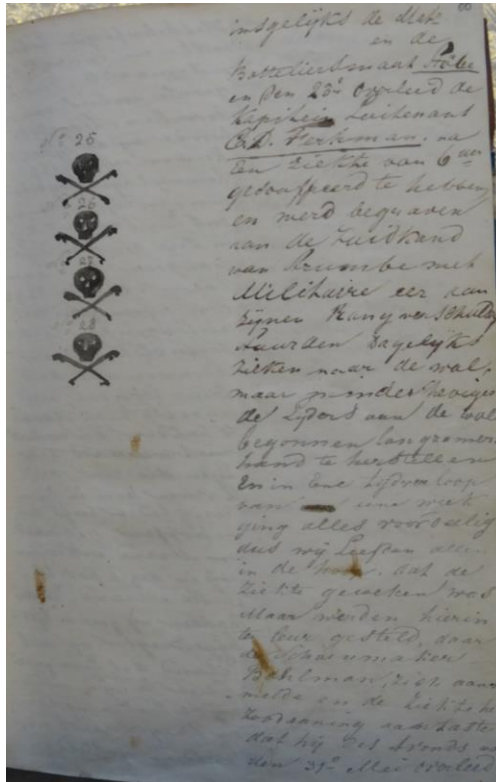 60
insgelijks de Mak
en de
Botteliersmaat
en den 23e Overleed de
Kapitein Luitenant
C.D. Ferkman. na
Een Ziekte van 6 uur
gesouffreerd te hebben,
en werd begraven
aan de Zuidkand
van met
Militaire eer aan
Zijnen Rang verschuldig
Dagelijks
Zieken naar de wal,
maar minder heviger
de Lijders aan de wal
begonnen langzamer
hand te herstellen
En in Een tijdverloop
van eene week
ging alles voordeelig
dus wij Leefden allen
in de hoop, dat de
Ziekte geweken was
Maar werden hierin
te leur gesteld, daar
de Schoenmaker
Bohlman, ziek aan
melde en de Ziekte h
aantaste
dat hij des Avonds
den 31e Mei overleed
No 25
26
27
28